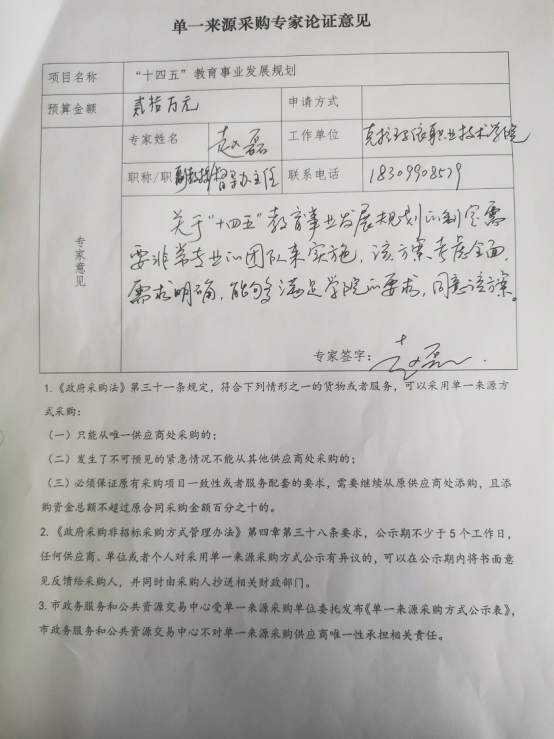 单一来源采购专家论证意见
项目名称 “十四五”教育事业发展规划
预算金额 贰拾万元 申请方式
专家姓名 赵磊 工作单位 克拉玛依职业技术学院
职称/职 副教授/督导办主任 联系电话 18309908579
专家意见
关于“十四五”教育事业发展规划的制定需
要非常专业的团队来实施,该方案考虑全面,
需求明确,能够满足学院的要求,同意该方案。
专家签字: 赵磊
1.《政府采购法》第三十一条规定,符合下列情形之一的货物或者服务,可以采用单一来源方
式采购:
(一)只能从唯一供应商处采购的;
(二)发生了不可预见的紧急情况不能从其他供应商处采购的;
(三)必须保证原有采购项目一致性或者服务配套的要求,需要继续从原供应商处添购,且添
购资金总额不超过原合同采购金额百分之十的。
2.《政府采购非招标采购方式管理办法》第四章第三十八条要求,公示期不少于5个工作日,
任何供应商、单位或者个人对采用单一来源采购方式公示有异议的,可以在公示期内将书面意
见反馈给采购人,并同时由采购人抄送相关财政部门。
3.市政务服务和公共资源交易中心受单一来源采购单位委托发布《单一来源采购方式公示表》,
市政务服务和公共资源交易中心不对单一来源采购供应商唯一性承担相关责任。